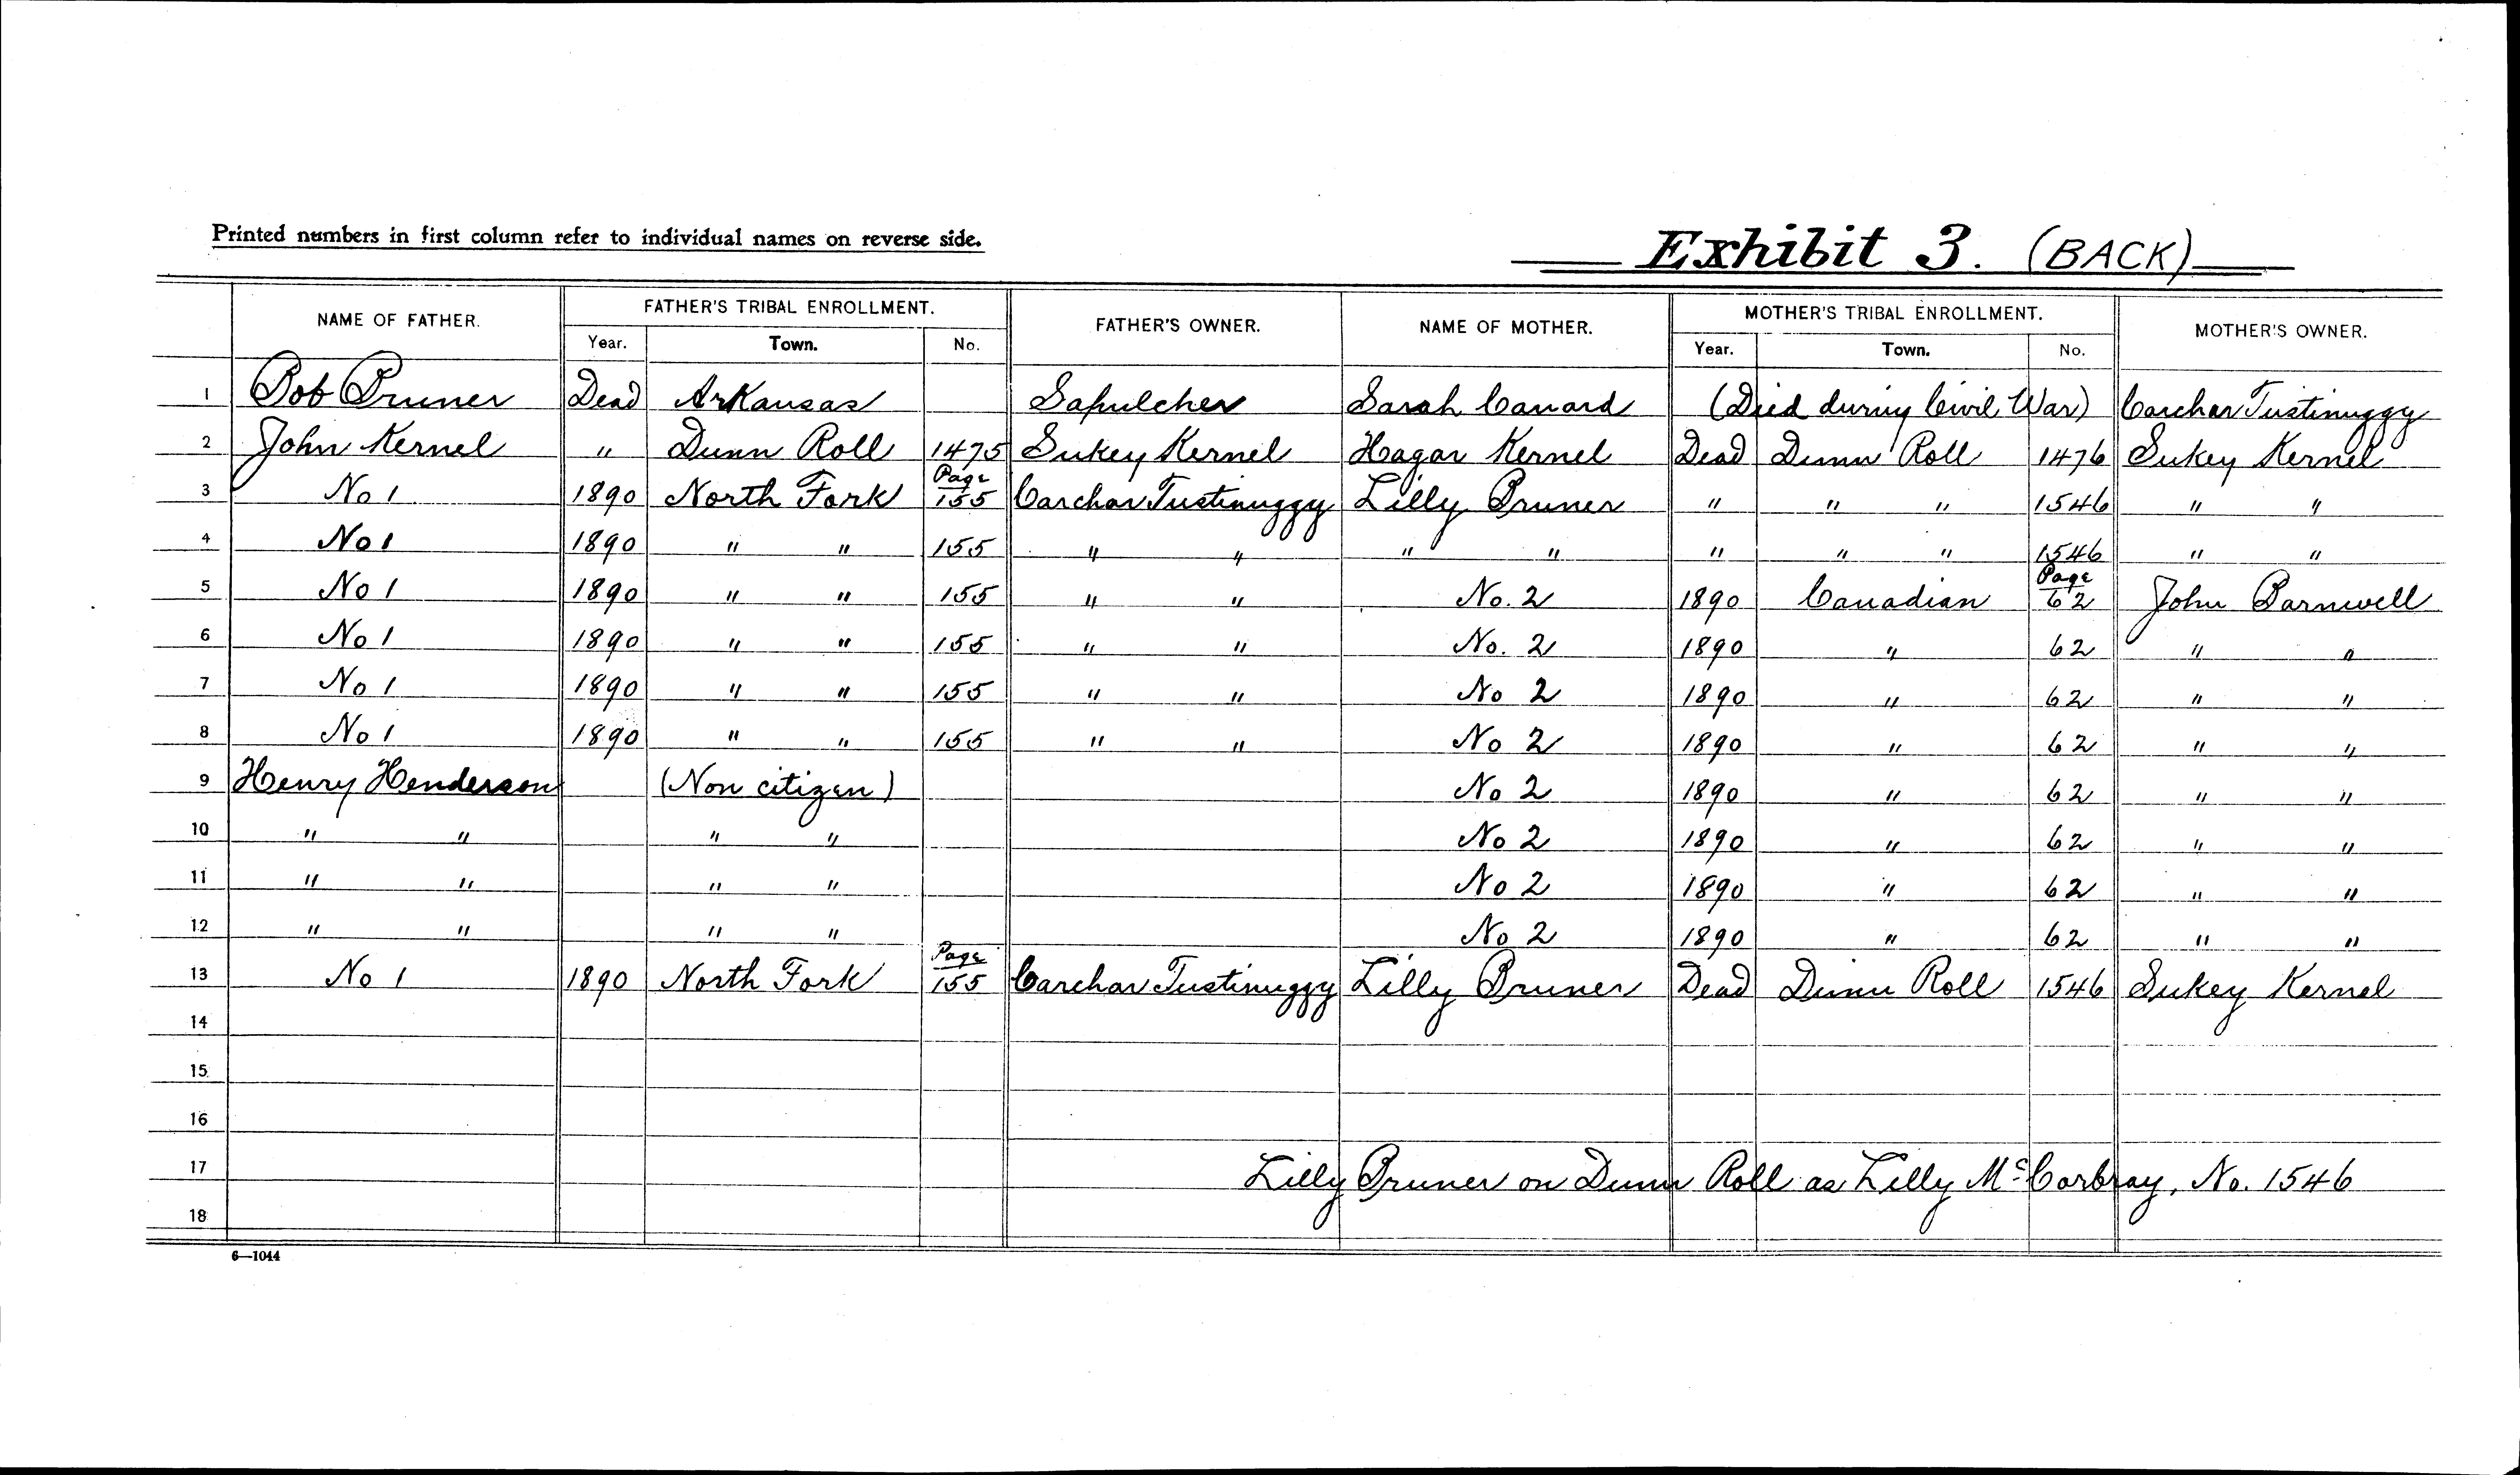 Printed numbers in first column refer to individual names on reverse side.
Exhibit 3. (BACK)
NAME OF FATHER. FATHER'S TRIBAL ENROLLMENT. FATHER'S OWNER. NAME OF MOTHER. MOTHER'S TRIBAL ENROLLMENT. MOTHER'S OWNER.
Year. Town. No. Year. Town. No.
1 Bob Pruner Dead Arkansas Sapulcher Sarah Canard (Died during Civil War) Carchar Tustinuggy
2 John Kernel " Dunn Roll 1475 Sukey Kernel Hagar Kernel Dead Dunn Roll 1476 Sukey Kernel
3 No 1 1890 North Fork Page 155 Carchar Tustinuggy Lilly Pruner " " " 1546 " "
4 No 1 1890 " " 155 " " " " " " " 1546 " "
5 No 1 1890 " " 155 " " No. 2 1890 Canadian Page 62 John Barnwell
6 No 1 1890 " " 155 " " No. 2 1890 " 62 " "
7 No 1 1890 " " 155 " " No 2 1890 " 62 " "
8 No 1 1890 " " 155 " " No 2 1890 " 62 " "
9 Henry Henderson (Non citizen) No 2 1890 " 62 " "
10 " " " " No 2 1890 " 62 " "
11 " " " " No 2 1890 " 62 " "
12 " " " " No 2 1890 " 62 " "
13 No 1 1890 North Fork Page 155 Carchar Tustinuggy Lilly Pruner Dead Dunn Roll 1546 Sukey Kernel
14
15
16
17 Lilly Pruner on Dunn Roll as Lilly McCorbray, No. 1546
18
6—1044